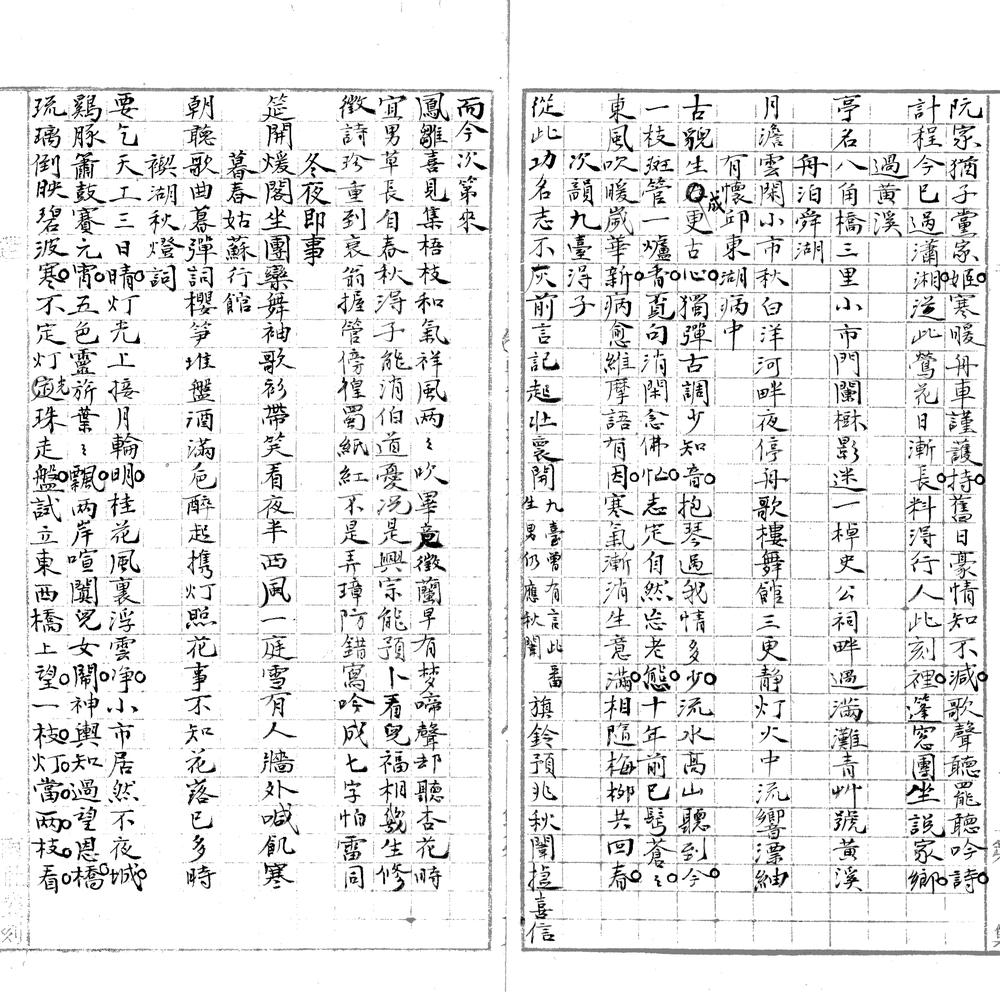 阮家猶子黨家姬寒暖舟車謹護持舊日豪情知不減歌聲聽罷聽吟詩
計程今已過瀟湘從此鶯花日漸長料得行人此刻裡篷窓團坐說家鄉
過黃溪
亭名八角橋三里小市門闌樹影迷一棹史公祠畔過滿灘青艸號黃溪
舟泊舜湖
月澹雲閑小市秋白洋河畔夜停舟歌樓舞館三更靜灯火中流響漂紬
有懷邱東湖病中
古貌生成更古心獨彈古調少知音抱琴過我情多少流水高山聽到今
一枝斑管一爐香覓句消閑念佛忙志定自然忘老態十年前已髩蒼〻
東風吹暖歲華新病愈維摩語有因寒氣漸消生意滿相隨梅柳共回春
次韻九臺得子
從此功名志不灰前言記起壯裏開九臺曾有言此番生男仍應秋闈旗鈴預兆秋闈捷喜信
而今次第來
鳳雛喜見集梧枝和氣祥風兩〻吹畢竟徵蘭早有梦啼聲却聽杏花時
宜男草長自春秋得子能消伯道憂况是興宗能預卜看兒福相幾生修
徵詩珍重到衰翁握管傍徨蜀紙紅不是弄璋防錯寫吟成七字怕雷同
冬夜即事
筵開煖閣坐團欒舞袖歌衫帶笑看夜半西風一庭雪有人牆外喊飢寒
暮春姑蘇行館
朝聽歌曲暮彈詞櫻笋堆盤酒滿卮醉起携灯照花事不知花落已多時
禊湖秋燈詞
要乞天工三日晴灯光上接月輪明桂花風裏浮雲净小市居然不夜城
鷄豚簫鼓賽元宵五色靈旂葉〻飄兩岸喧闐兒女鬧神輿知過望恩橋
琉璃倒映碧波寒不定灯光珠走盤試立東西橋上望一枝灯當兩枝看